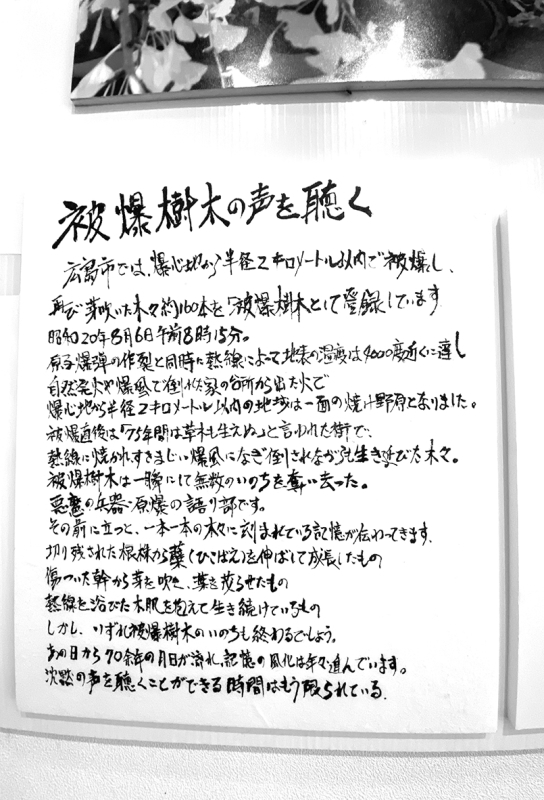 被爆樹木の声を聴く
広島市では、爆心地から半径2キロメートル以内で被爆し、
再び芽吹いた木々約160本を「被爆樹木」として登録しています
昭和20年8月6日午前8時15分。
原子爆弾の炸裂と同時に熱線によって地表の温度は4000度近くに達し
自然発火や爆風で倒れた家の台所から出た火で
爆心地から半径2キロメートル以内の地域は一面の焼け野原となりました。
被爆直後は「75年間は草木も生えぬ」と言われた街で、
熱線に焼かれすさまじい爆風になぎ倒されながらも生き延びた木々。
被爆樹木は一瞬にして無数のいのちを奪い去った。
悪魔の兵器・原爆の語り部です。
その前に立つと、一本一本の木々に刻まれている記憶が伝わってきます。
切り残された根株から蘖(ひこばえ)を伸ばして成長したもの
傷ついた幹から芽を吹き、葉を茂らせたもの
熱線を浴びた木肌を抱えて生き続けているもの
しかし、いずれ被爆樹木のいのちも終わるでしょう。
あの日から70余年の月日が流れ、記憶の風化は年々進んでいます。
沈黙の声を聴くことができる時間はもう限られている.